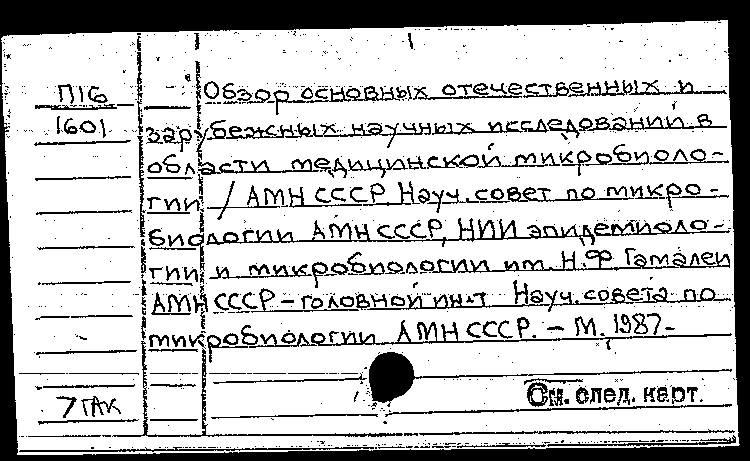 П16
1601
Обзор основных отечественных и
зарубежных научных исследований в
области медицинской микробиоло-
гии / АМН СССР, Науч. совет по микро-
биологии АМН СССР, НИИ эпидемиоло-
гии и микробиологии им. Н.Ф. Гамалеи
АМН СССР - головной ин-т Науч. совета по
микробиологии АМН СССР. - М., 1987-
7 ГАК
См. след. карт.